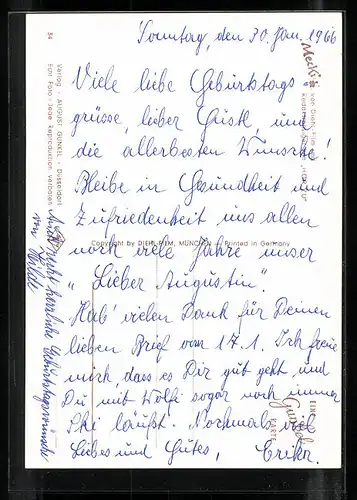 Sonntag, den 30. Jan. 1966
Viele liebe Geburtstags-
grüsse, lieber Gustl, und
die allerbesten Wünsche!
Bleibe in Gesundheit und
Zufriedenheit uns allen
noch viele Jahre unser
"Lieber Augustin".
Hab' vielen Dank für Deinen
lieben Brief vom 17.1. Ich freue
mich, dass es Dir gut geht und
Du mit Wölfi sogar noch immer
Ski läufst. Nochmals viel
Liebes und Gutes, Erika.
Auch recht herzliche Geburtstagswünsche
von Hilde
Copyright by DIEHL-FILM, MÜNCHEN - Printed in Germany
34
Verlag: AUGUST GUNKEL - Düsseldorf
Echt Foto - Jede Reproduktion verboten
Mecki
von Diehl-Film
EINE
Gunkel
KARTE